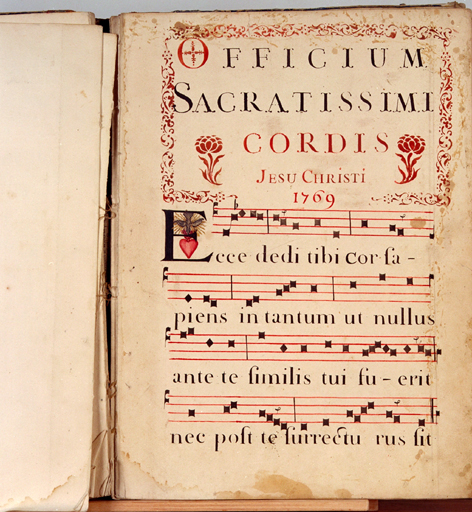 OFFICIUM
SACRATISSIMI
CORDIS
JESU CHRISTI
1769
Ecce dedi tibi cor sa-
piens in tantum ut nullus
ante te similis tui fu-erit
nec post te surrectu rus sit